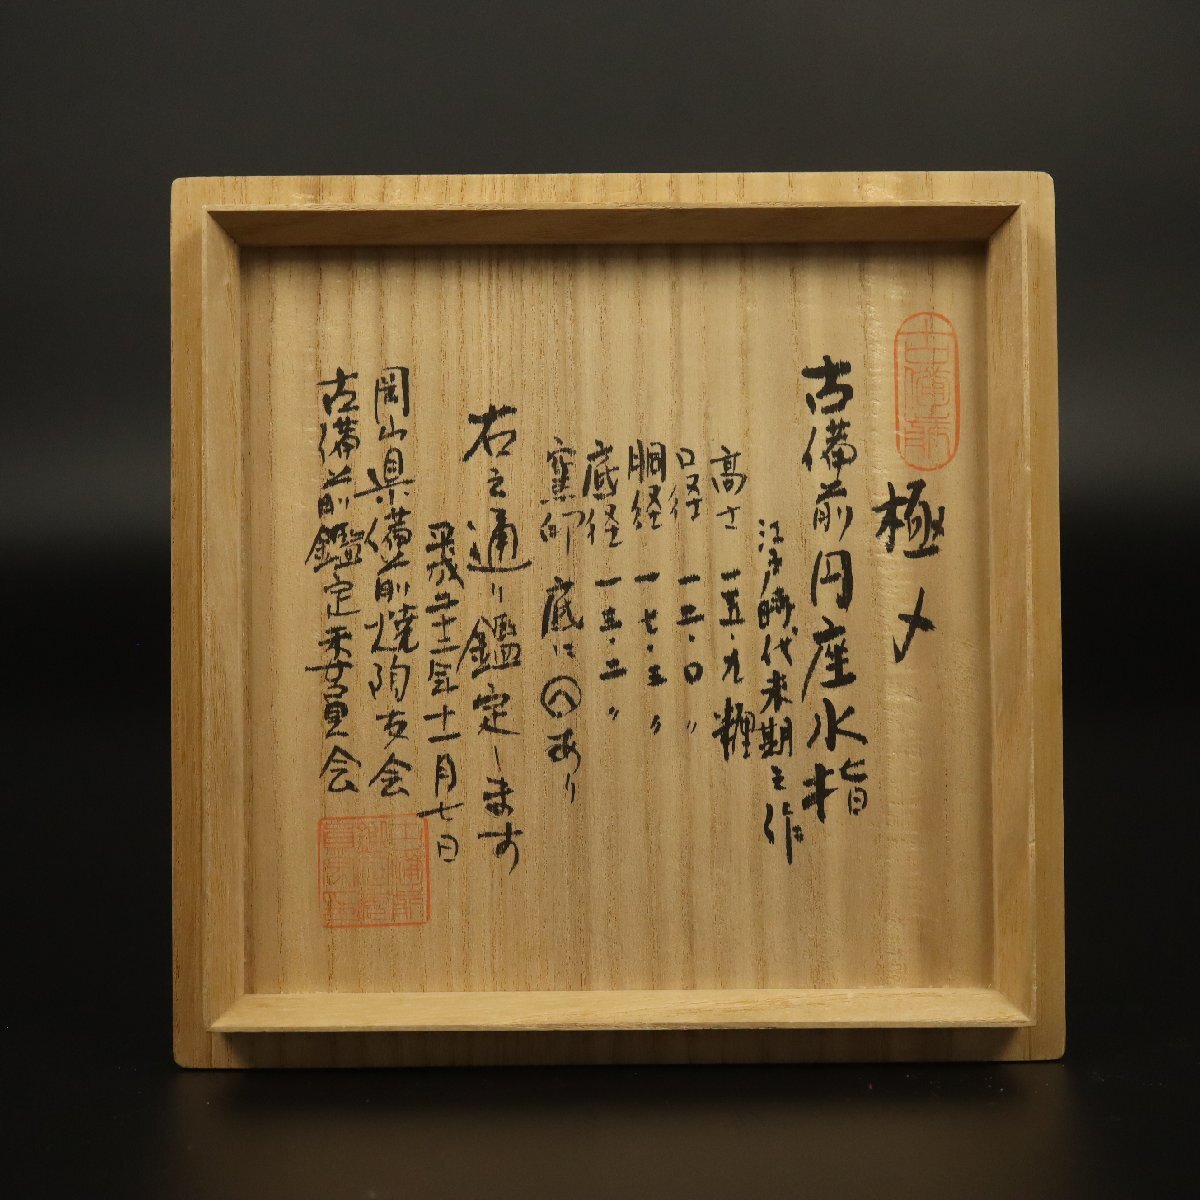 古備前
極〆
古備前円座水指
江戸時代末期之作
高さ 一五・九糎
口径 一三・〇〃
胴経 一七・五〃
底径 一五・二〃
窯印 底に あり
右之通り鑑定します
平成二十二年十一月七日
岡山県備前焼陶友会
古備前鑑定委員会